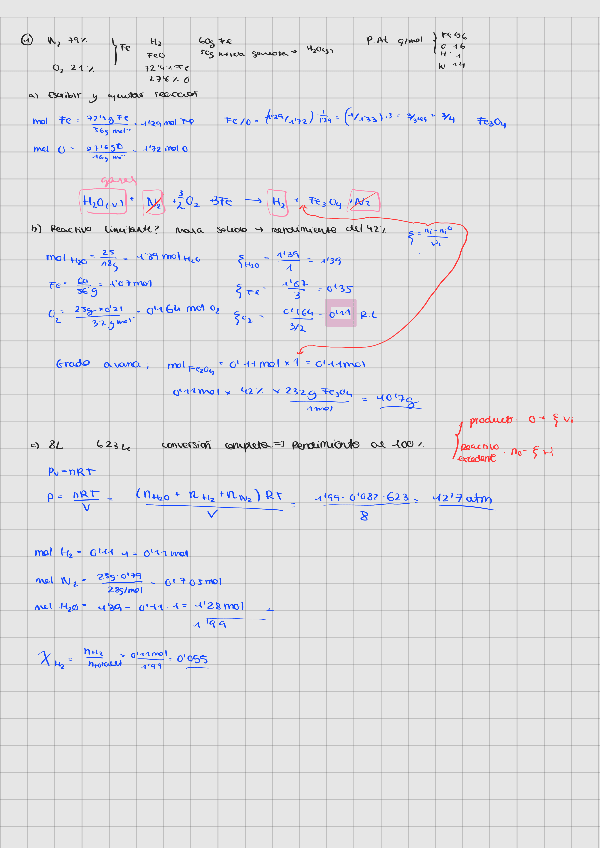 ① N₂ 79% } Fe H₂ 60g Fe P.At g/mol { Fe 56
FeO 25g mezcla gaseosa → H₂O(v) O 16
O₂ 21% 72'4% Fe H 1
27'6% O N 14
a) Escribir y ajustar reacción
mol Fe = 72'4g Fe / 56g mol⁻¹ = 1'29 mol Fe Fe/O = (1'29/1'72) 1/1'29 = (1/1'33)·3 = 3/3'99 = 3/4 Fe₃O₄
mol O = 27'6gO / 16g mol⁻¹ = 1'72 mol O
gases
H₂O(v) + N₂ + 3/2 O₂ + 3Fe → H₂ + Fe₃O₄ + N₂
b) Reactivo limitante? masa solido → rendimiento del 42% ξ = nᵢ-nᵢ⁰ / νᵢ
mol H₂O = 25 / 18g = 1'39 mol H₂O ξ H₂O = 1'39 / 1 = 1'39
Fe = 60 / 56g = 1'07 mol ξ Fe = 1'07 / 3 = 0'35
O₂ = 25g × 0'21 / 32g mol⁻¹ = 0'164 mol O₂ ξ O₂ = 0'164 / 3/2 = 0'11 R.L
Grado avance, mol Fe₃O₄ = 0'11 mol × 1 = 0'11 mol
0'11 mol × 42% × 232g Fe₃O₄ / 1 mol = 10'7g
{ producto 0 + ξ νᵢ
reactivo excedente = n₀ - ξ νᵢ
c) 8L 623K conversión completa ⇒ Rendimiento al 100%
PV = nRT
P = nRT / V = (n H₂O + n H₂ + n N₂) RT / V = 1'99 · 0'082 · 623 / 8 = 12'7 atm
mol H₂ = 0'11 · 1 = 0'11 mol
mol N₂ = 25g·0'79 / 28g/mol = 0'705 mol
mol H₂O = 1'39 - 0'11 · 1 = 1'28 mol
1'99
χ H₂ = n H₂ / n totales = 0'11 mol / 1'99 = 0'055